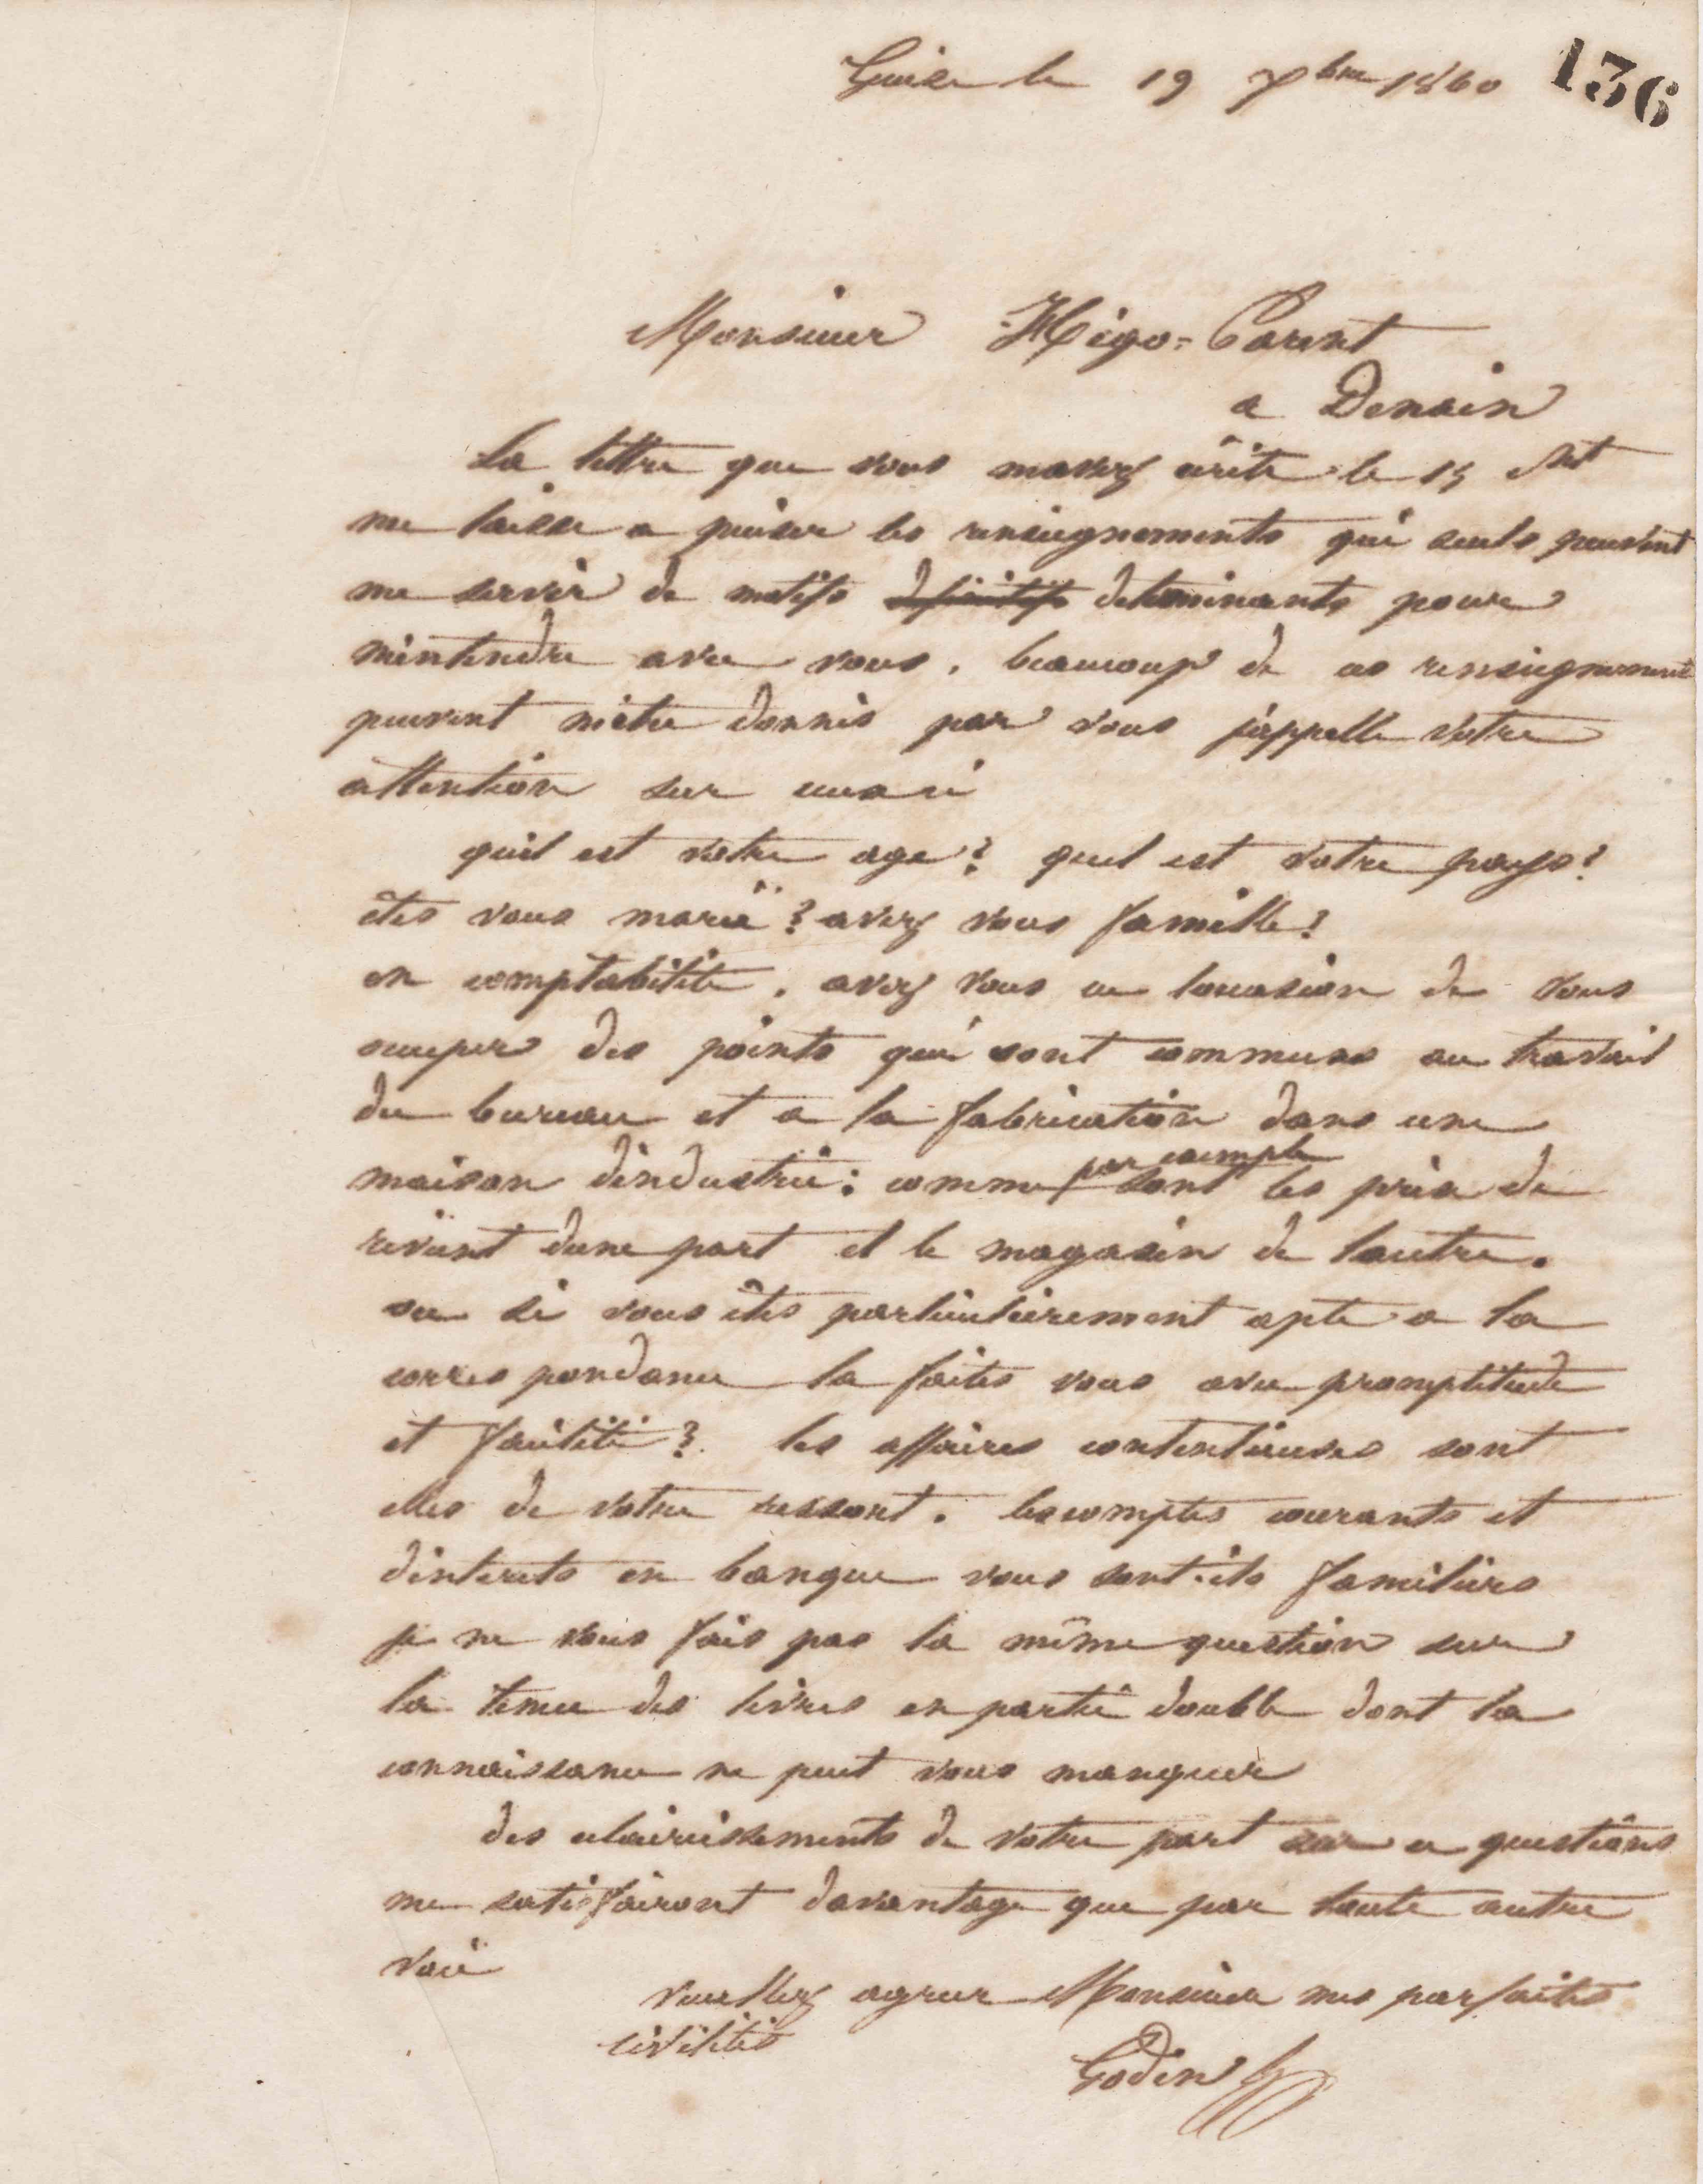 Guise le 19 7bre 1860
136
Monsieur Hégo-Parent
a Denain
La lettre que vous mavez écrite le 15 ct
me laisse a puiser les renseignements qui seuls peuvent
me servir de motifs définitifs determinants pour
mentendre avec vous. beaucoup de ces renseignements
peuvent mêtre donnés par vous jappelle votre
attention sur ceux ci
quel est votre age? quel est votre pays?
êtes vous marié? avez vous famille?
en comptabilité. avez vous eu loccasion de vous
occuper des points qui sont communs au travail
du bureau et a la fabrication dans une
maison dindustrie: comme par exemple sont les prix de
revient dune part et le magasin de lautre.
ou si vous êtes particulièrement apte a la
correspondance la faites vous avec promptitude
et facilité? les affaires contentieuses sont
elles de votre ressort. les comptes courants et
dinterets en banque vous sont-ils familiers
je ne vous fais pas la même question sur
la tenue des livres en partie double dont la
connaissance ne peut vous manquer
des eclaircissements de votre part sur ces questions
me satisfairont davantage que par toute autre
voie
veuillez agreer Monsieur mes parfaites
civilités
Godin